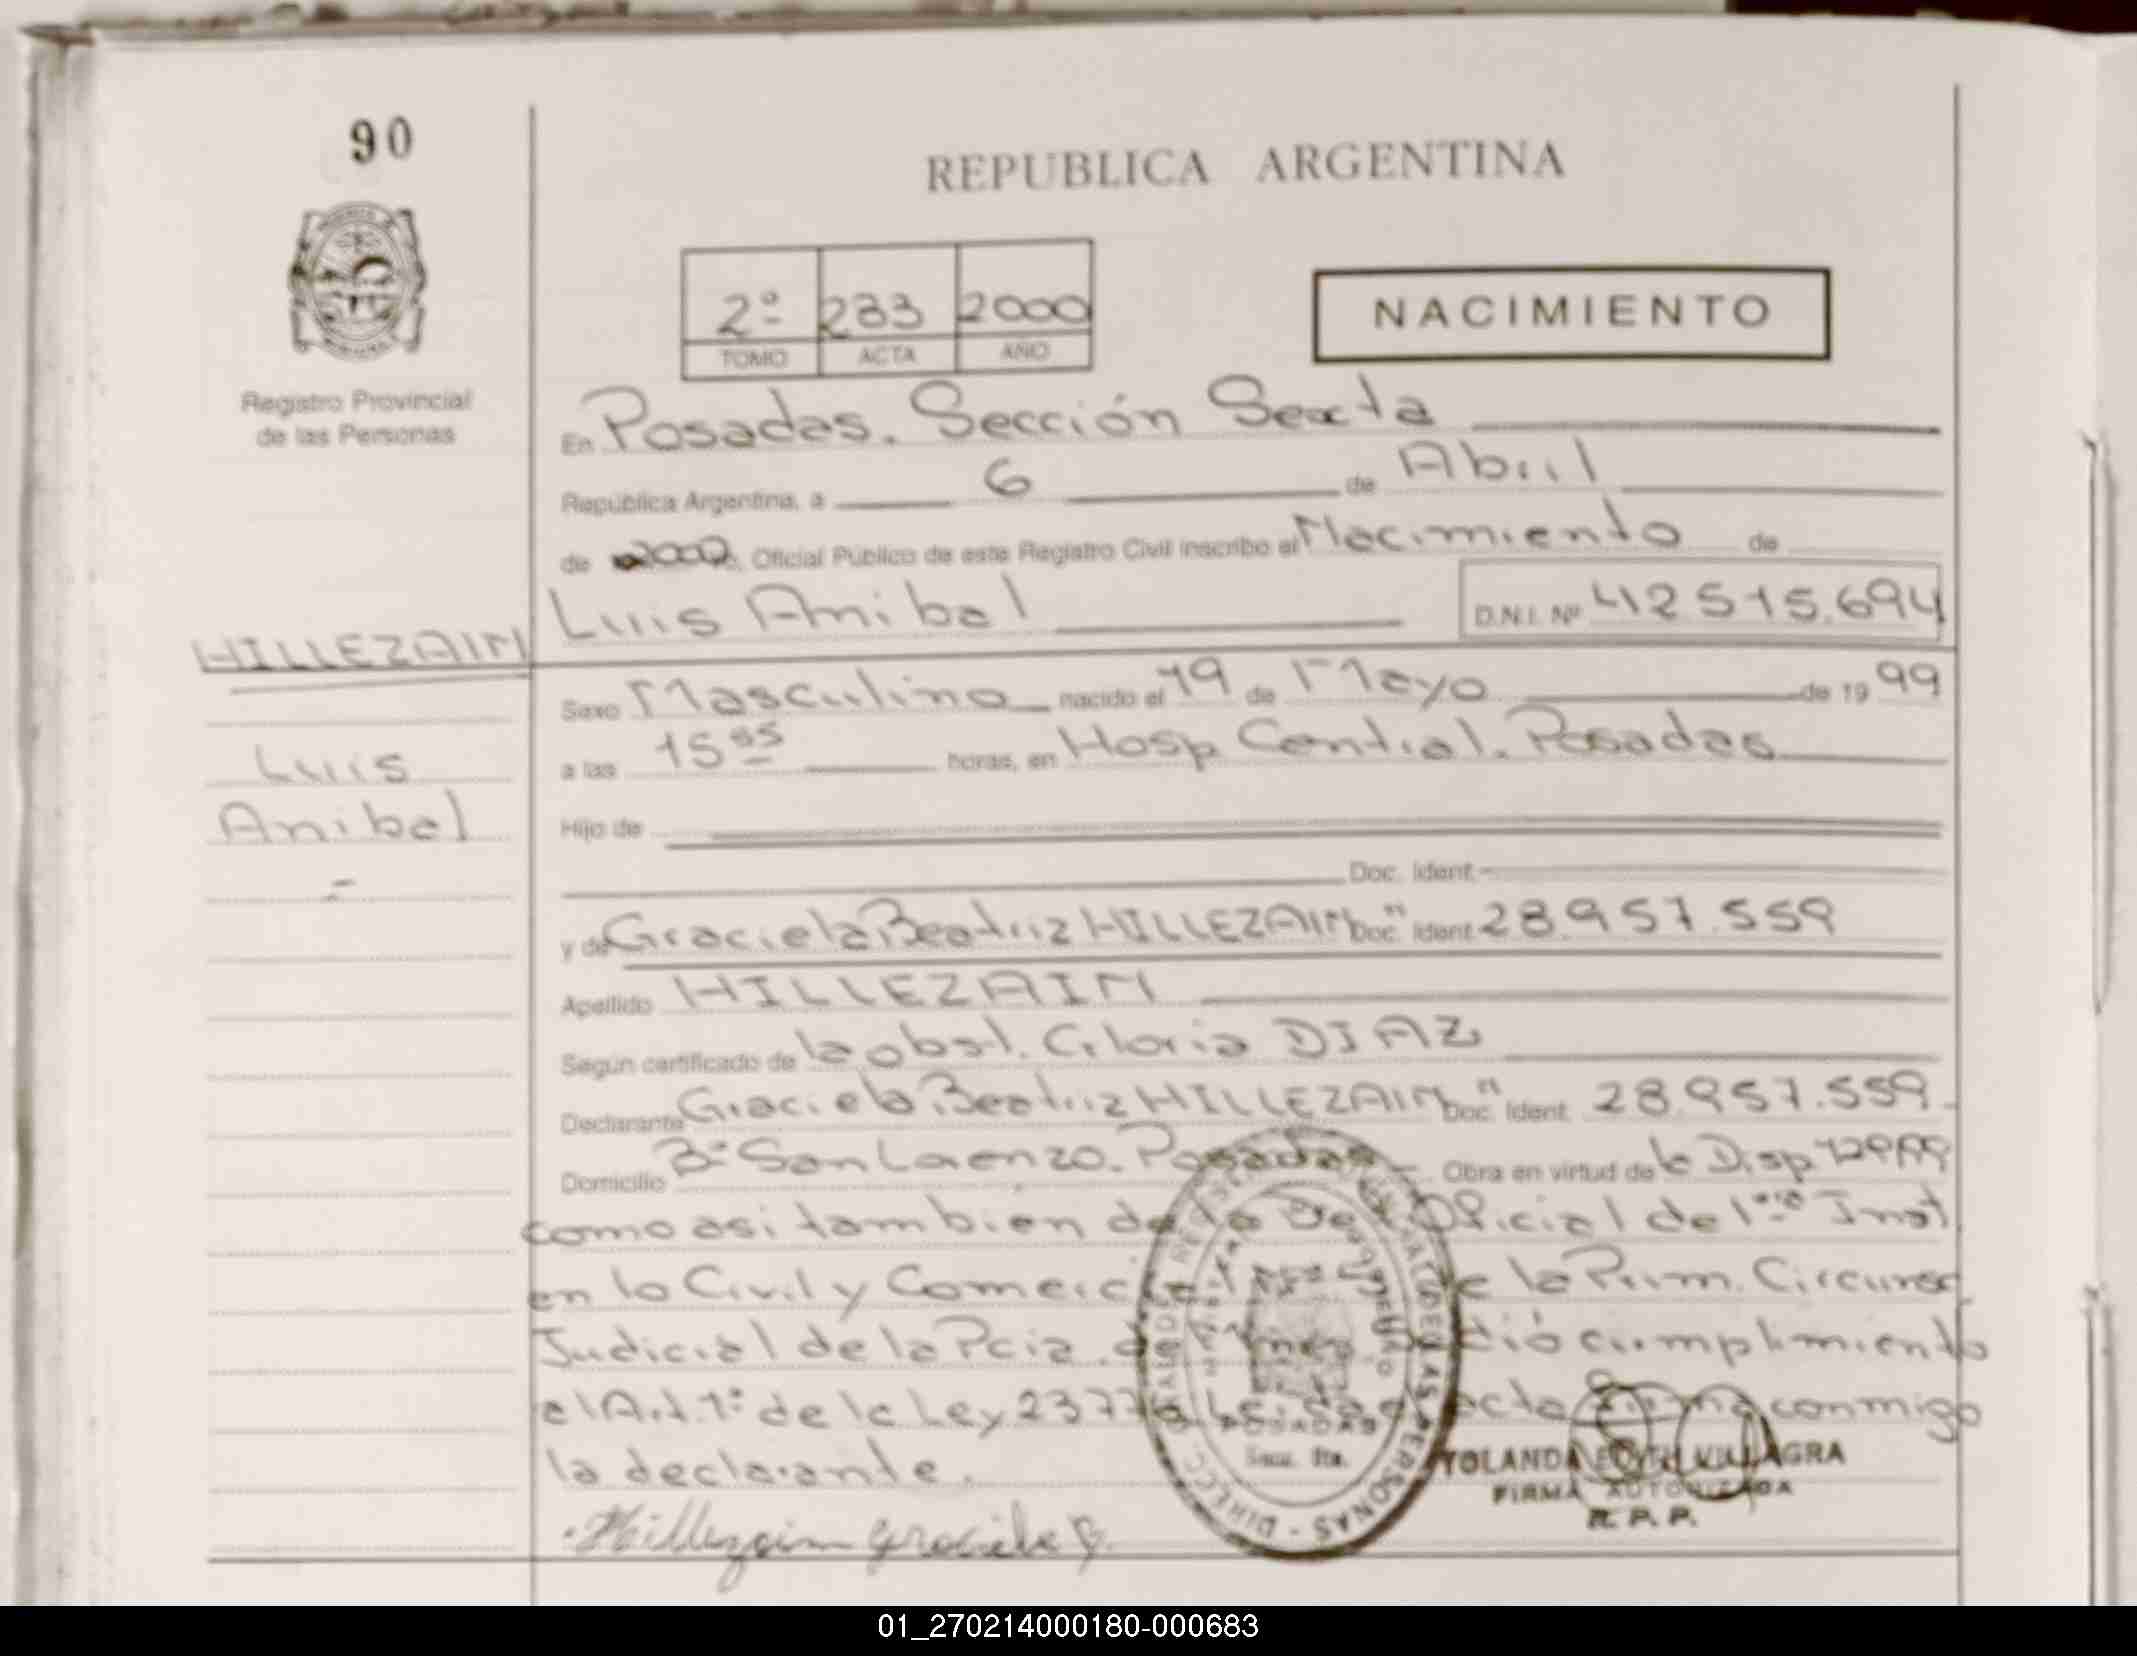 90
REPUBLICA ARGENTINA
2º 233 2000
TOMO ACTA AÑO
NACIMIENTO
Registro Provincial
de las Personas
En Posadas. Sección Sexta
República Argentina, a 6 de Abril
de 2000, Oficial Público de este Registro Civil inscribo el Nacimiento de
Luis Anibal D.N.I. Nº 42.515.694
HILLEZAIN
Luis
Anibal
Sexo Masculino nacido el 19 de Mayo de 19 99
a las 15 horas, en Hosp Central. Posadas
Hijo de
Doc. Ident.
y de Graciela Beatriz HILLEZAIN Doc. Ident. 28.957.559
Apellido HILLEZAIN
Según certificado de la obst. Gloria DIAZ
Declarante Graciela Beatriz HILLEZAIN Doc. Ident. 28.957.559
Domicilio Bº San Lorenzo. Posadas Obra en virtud de la Disp
como asi tambien de la Oficial de 1ra Inst
en lo Civil y Comercial de la Prim. Circunsc
Judicial de la Pcia. de dió cumplimiento
al Art. 1º de la Ley 23776 acta firma conmigo
la declarante.
Hillezain Graciela B.
POSADAS
Secc. 6ta.
YOLANDA EDITH VILLAGRA
FIRMA AUTORIZADA
R. P. P.
01_270214000180-000683